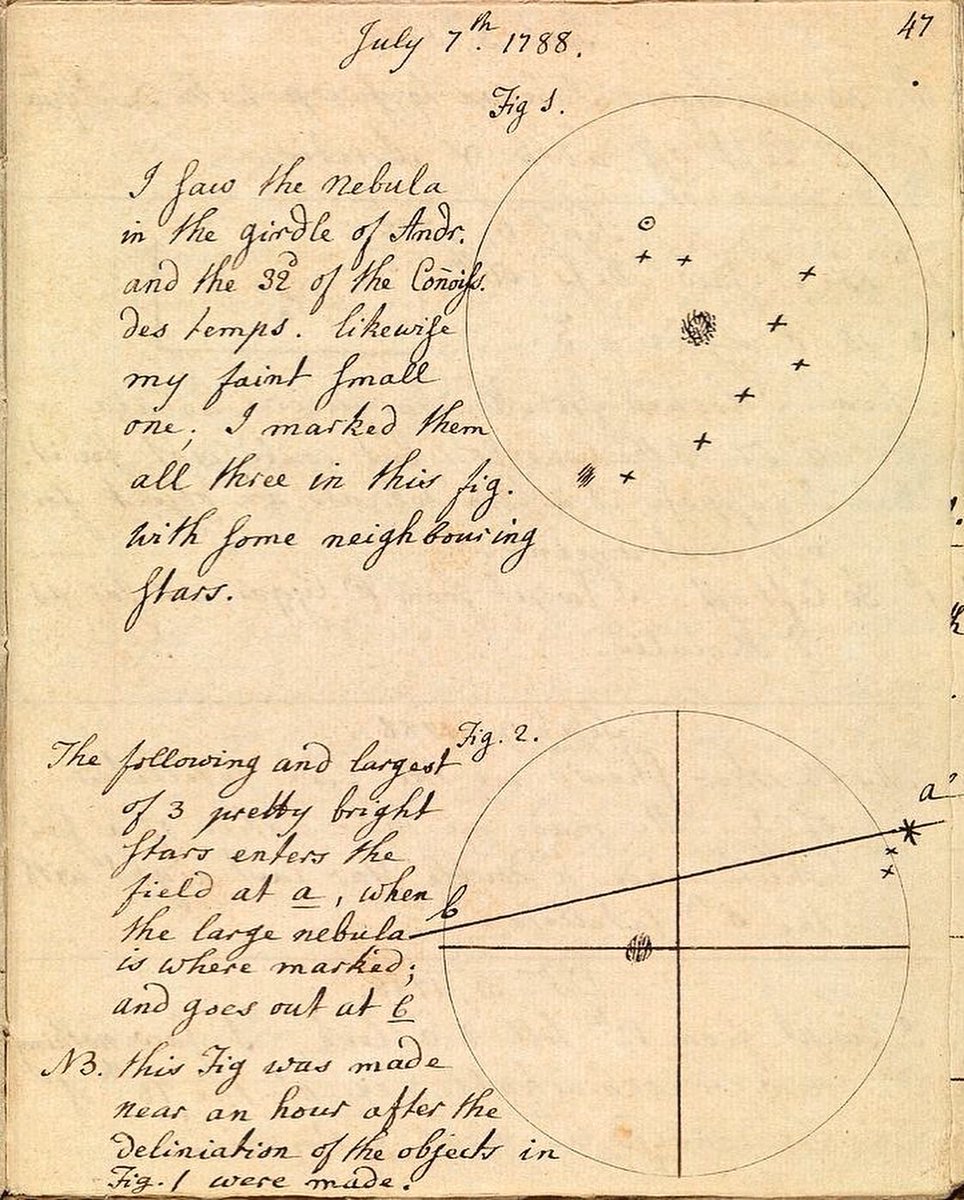 47
July 7th. 1788.
Fig 1.
I saw the nebula
in the girdle of Andr.
and the 32d of the Coñoiss.
des temps. likewise
my faint small
one; I marked them
all three in this fig.
with some neighbouring
stars.
Fig. 2.
The following and largest
of 3 pretty bright
stars enters the
field at a, when
the large nebula
is where marked;
and goes out at b
a
b
NB. this Fig was made
near an hour after the
deliniation of the objects in
Fig. 1 were made.